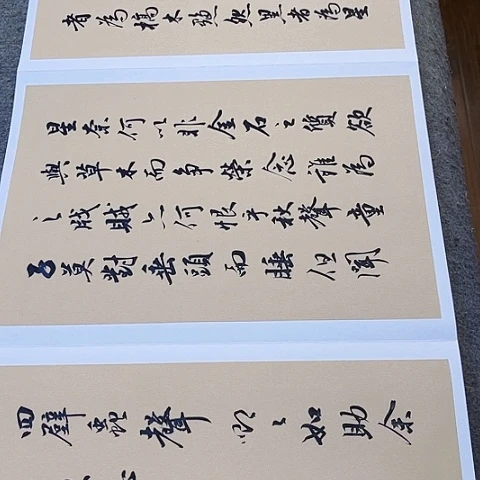 者為槁木黟然黑者為星
星奈何以非金石之質欲
與草木而爭榮念誰為
之戕賊亦何恨乎秋聲童
子莫對垂頭而睡但聞
四壁蟲聲唧〻如助余